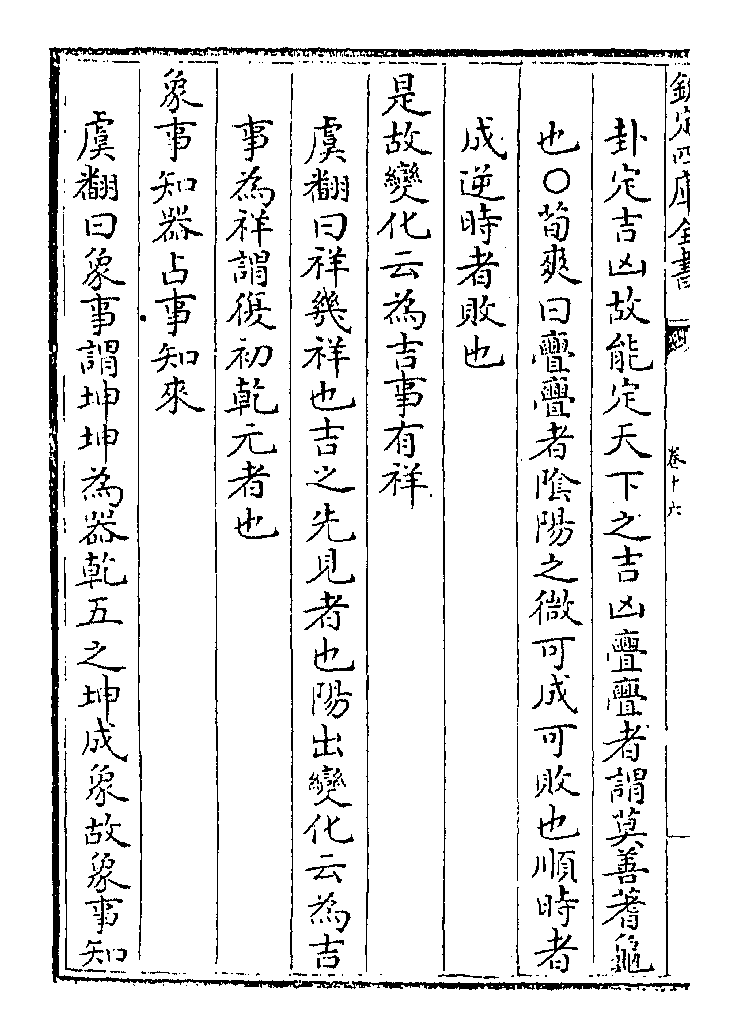 欽定四庫全書
卷十六
卦定吉凶故能定天下之吉凶亹亹者謂莫善蓍龜
也○荀爽曰亹亹者陰陽之微可成可敗也順時者
成逆時者敗也
是故變化云為吉事有祥
虞翻曰祥幾祥也吉之先見者也陽出變化云為吉
事為祥謂復初乾元者也
象事知器占事知來
虞翻曰象事謂坤坤為器乾五之坤成象故象事知